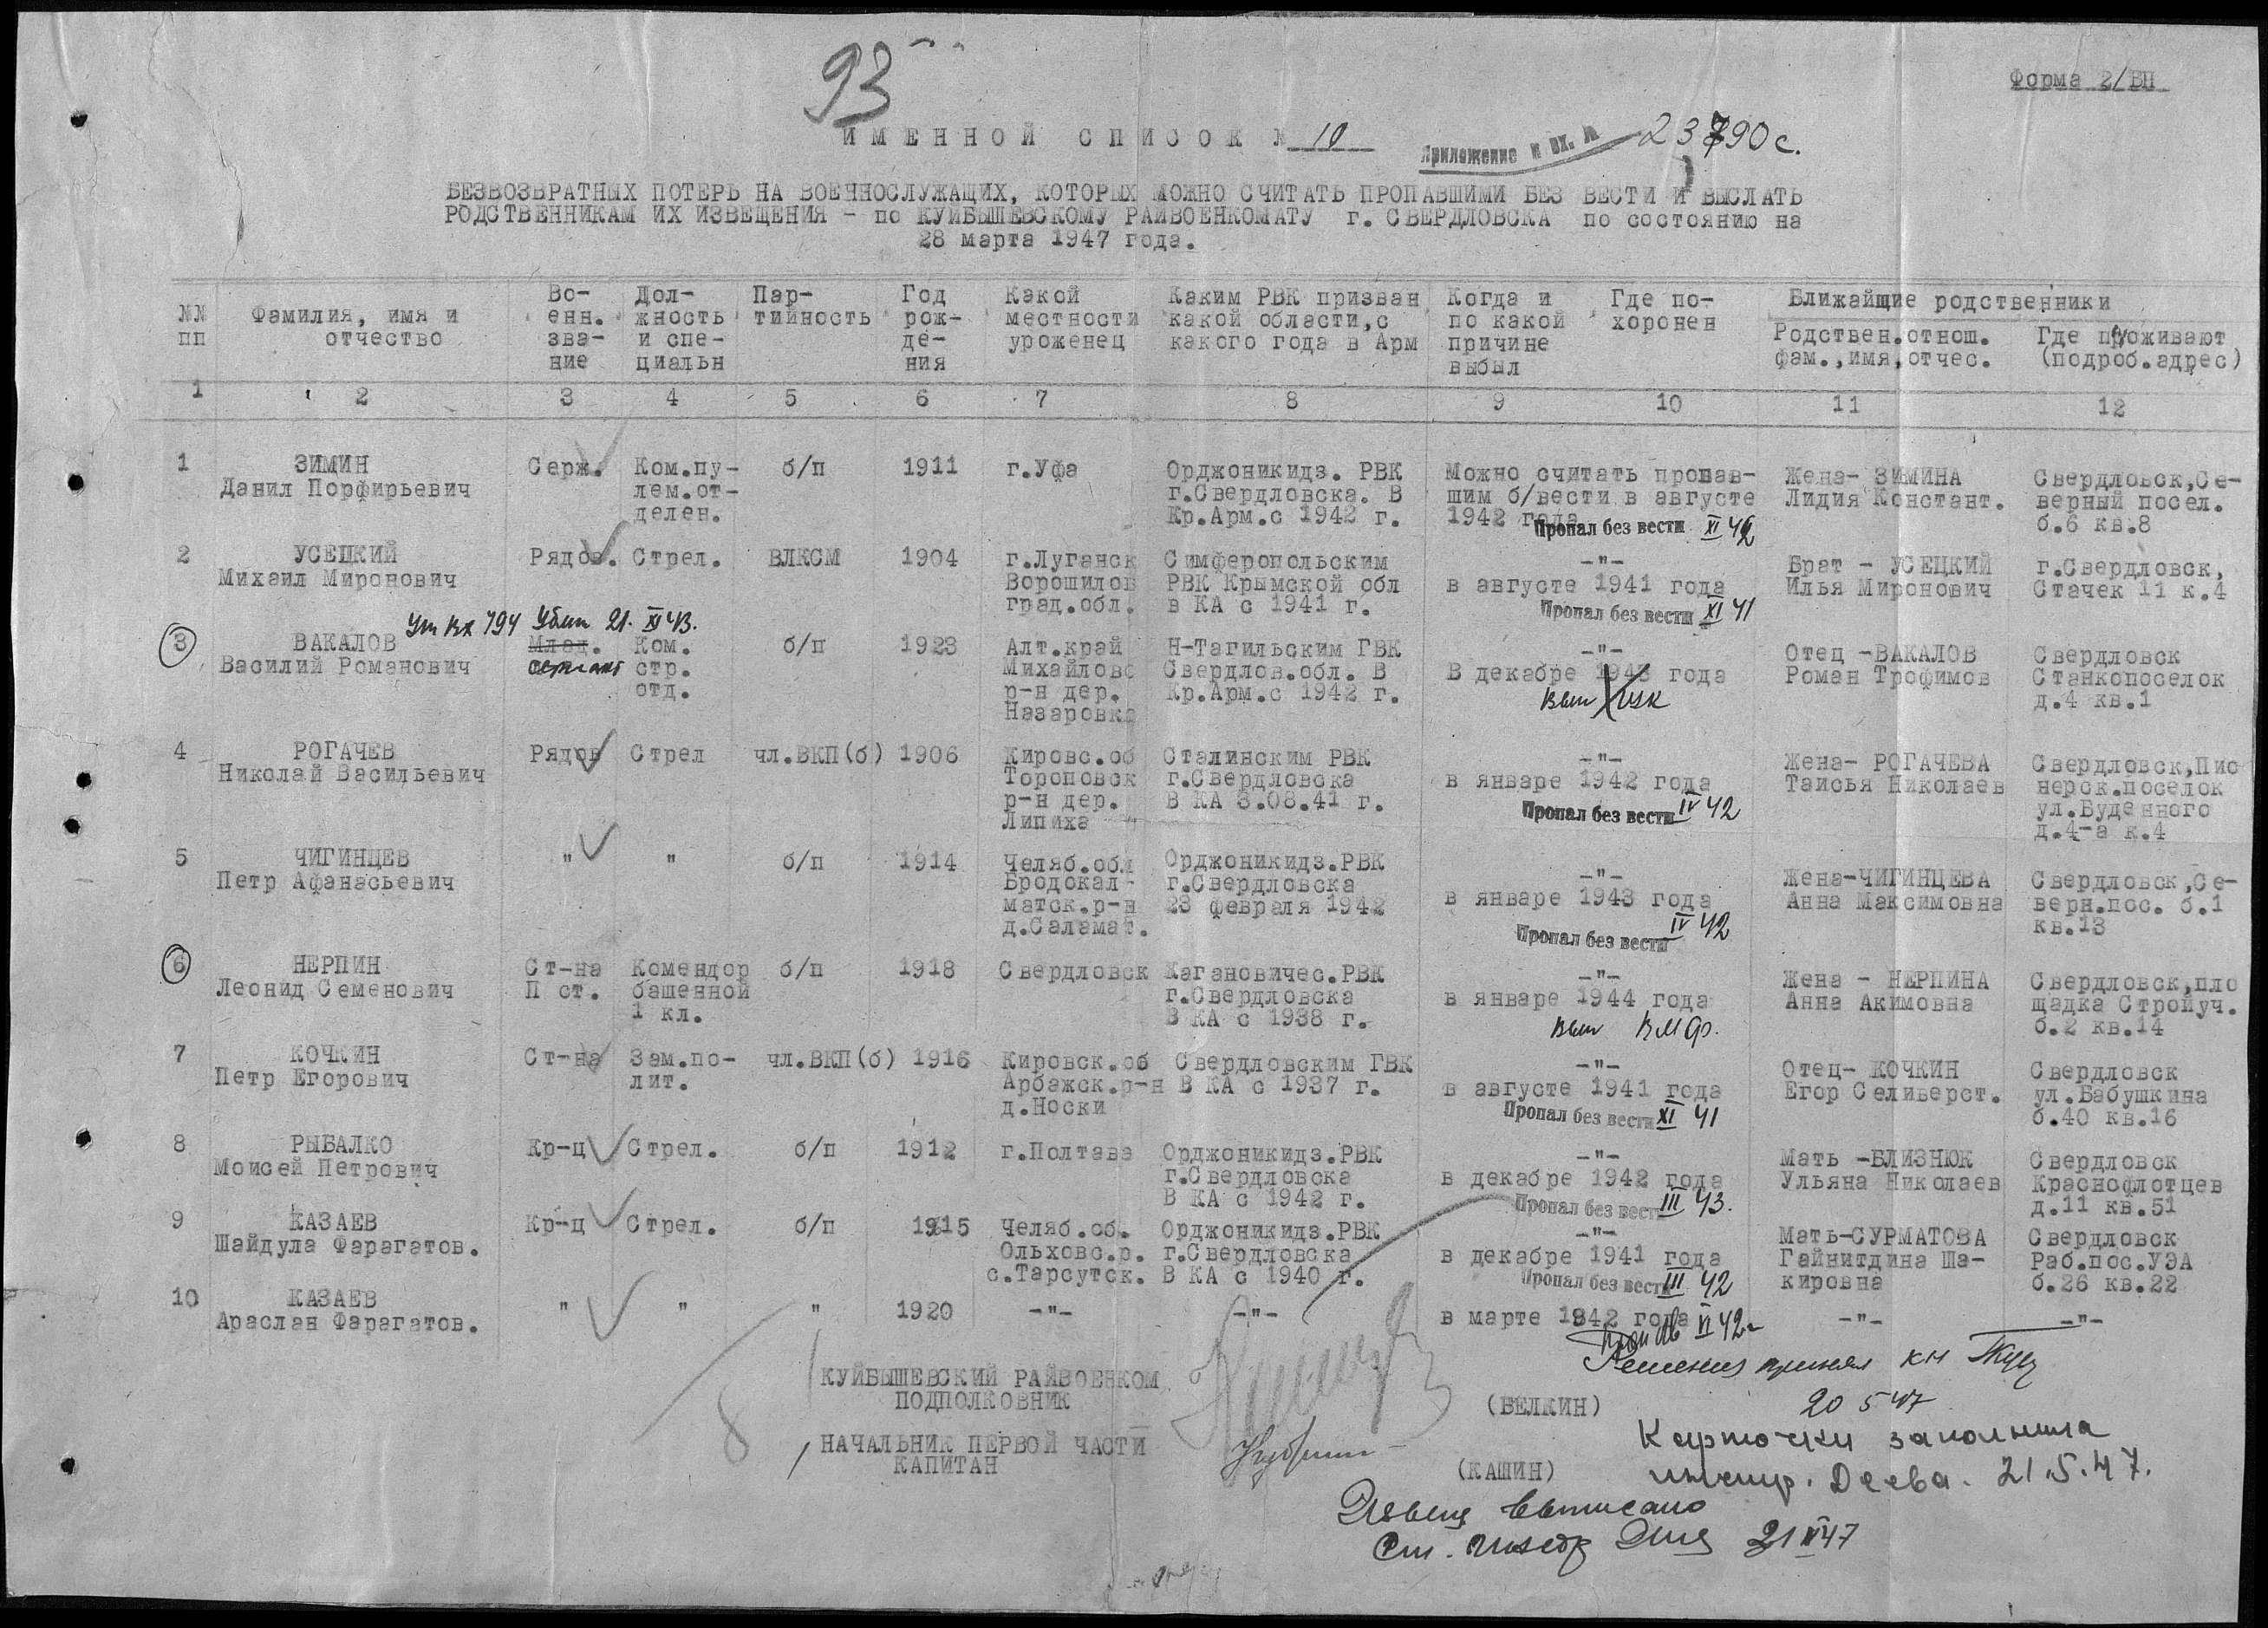 93
Форма 2/БП
ИМЕННОЙ СПИСОК № 10
Приложение к вх. № 23790с.
БЕЗВОЗВРАТНЫХ ПОТЕРЬ НА ВОЕННОСЛУЖАЩИХ, КОТОРЫХ МОЖНО СЧИТАТЬ ПРОПАВШИМИ БЕЗ ВЕСТИ И ВЫСЛАТЬ
РОДСТВЕННИКАМ ИХ ИЗВЕЩЕНИЯ - по КУЙБЫШЕВСКОМУ РАЙВОЕНКОМАТУ г. СВЕРДЛОВСКА по состоянию на
28 марта 1947 года.
№№ пп
Фамилия, имя и отчество
Во-енн. зва-ние
Дол-жность и спе-циальн
Пар-тийность
Год рож-де-ния
Какой местности уроженец
Каким РВК призван какой области, с какого года в Арм
Когда и по какой причине выбыл
Где по-хоронен
Ближайщие родственники
Родствен.отнош. фам.,имя,отчес.
Где проживают (подроб.адрес)
1 2 3 4 5 6 7 8 9 10 11 12
1 ЗИМИН Серж. Ком.пу- б/п 1911 г.Уфа Орджоникидз. РВК Можно считать пропав- Жена- ЗИМИНА Свердловск,Се-
Данил Порфирьевич лем.от- г.Свердловска. В шим б/вести в августе Лидия Констант. верный посел.
делен. Кр.Арм.с 1942 г. 1942 года б.6 кв.8
Пропал без вести XI 42
2 УСЕЦКИЙ Рядов. Стрел. ВЛКСМ 1904 г.Луганск Симферопольским -"- Брат - УСЕЦКИЙ г.Свердловск,
Михаил Миронович Ворошилов РВК Крымской обл в августе 1941 года Илья Миронович Стачек 11 к.4
град.обл. в КА с 1941 г. Пропал без вести XI 41
Убит 21. XI 43.
3 ВАКАЛОВ Млад. Ком. б/п 1923 Алт.край Н-Тагильским ГВК -"- Отец -ВАКАЛОВ Свердловск
Василий Романович сержант стр. Михайловс Свердлов.обл. В В декабре 1943 года Роман Трофимов Станкопоселок
отд. р-н дер. Кр.Арм.с 1942 г. д.4 кв.1
Назаровка
4 РОГАЧЕВ Рядов Стрел чл.ВКП(б) 1906 Кировс.об Сталинским РВК -"- Жена- РОГАЧЕВА Свердловск,Пио
Николай Васильевич Тороповск г.Свердловска в январе 1942 года Таисья Николаев нерск.поселок
р-н дер. В КА 3.08.41 г. Пропал без вести IV 42 ул.Буденного
Липиха д.4-а к.4
5 ЧИГИНЦЕВ " " б/п 1914 Челяб.обл Орджоникидз.РВК -"- Жена-ЧИГИНЦЕВА Свердловск,Се-
Петр Афанасьевич Бродокал- г.Свердловска в январе 1943 года Анна Максимовна верн.пос. б.1
матск.р-н 23 февраля 1942 кв.13
д.Саламат. Пропал без вести IV 42
6 НЕРПИН Ст-на Комендор б/п 1918 Свердловск Кагановичес.РВК -"- Жена - НЕРПИНА Свердловск,пло
Леонид Семенович П ст. башенной г.Свердловска в январе 1944 года Анна Акимовна щадка Стройуч.
1 кл. В КА с 1938 г. б.2 кв.14
ВМФ.
7 КОЧКИН Ст-на Зам.по- чл.ВКП(б) 1916 Кировск.об Свердловским ГВК -"- Отец- КОЧКИН Свердловск
Петр Егорович лит. Арбажск.р-н В КА с 1937 г. в августе 1941 года Егор Селиверст. ул.Бабушкина
д.Носки Пропал без вести XI 41 б.40 кв.16
8 РЫБАЛКО Кр-ц Стрел. б/п 1912 г.Полтава Орджоникидз.РВК -"- Мать -БЛИЗНЮК Свердловск
Моисей Петрович г.Свердловска в декабре 1942 года Ульяна Николаев Краснофлотцев
В КА с 1942 г. Пропал без вести III 43. д.11 кв.51
9 КАЗАЕВ Кр-ц Стрел. б/п 1915 Челяб.об. Орджоникидз.РВК -"- Мать-СУРМАТОВА Свердловск
Шайдула Фарагатов. Ольховс.р. г.Свердловска в декабре 1941 года Гайнитдина Ша- Раб.пос.УЭА
с.Тарсутск. В КА с 1940 г. Пропал без вести III 42 кировна б.26 кв.22
10 КАЗАЕВ " " " 1920 -"- -"- в марте 1942 года -"- -"-
Араслан Фарагатов. VI 42
КУЙБЫШЕВСКИЙ РАЙВОЕНКОМ
ПОДПОЛКОВНИК (БЕЛКИН)
НАЧАЛЬНИК ПЕРВОЙ ЧАСТИ
КАПИТАН (КАШИН)
8
Решения принял
20 5 47
Карточки заполнила
инспр. Деева. 21.5.47.
Извещ выписано
21 VI 47